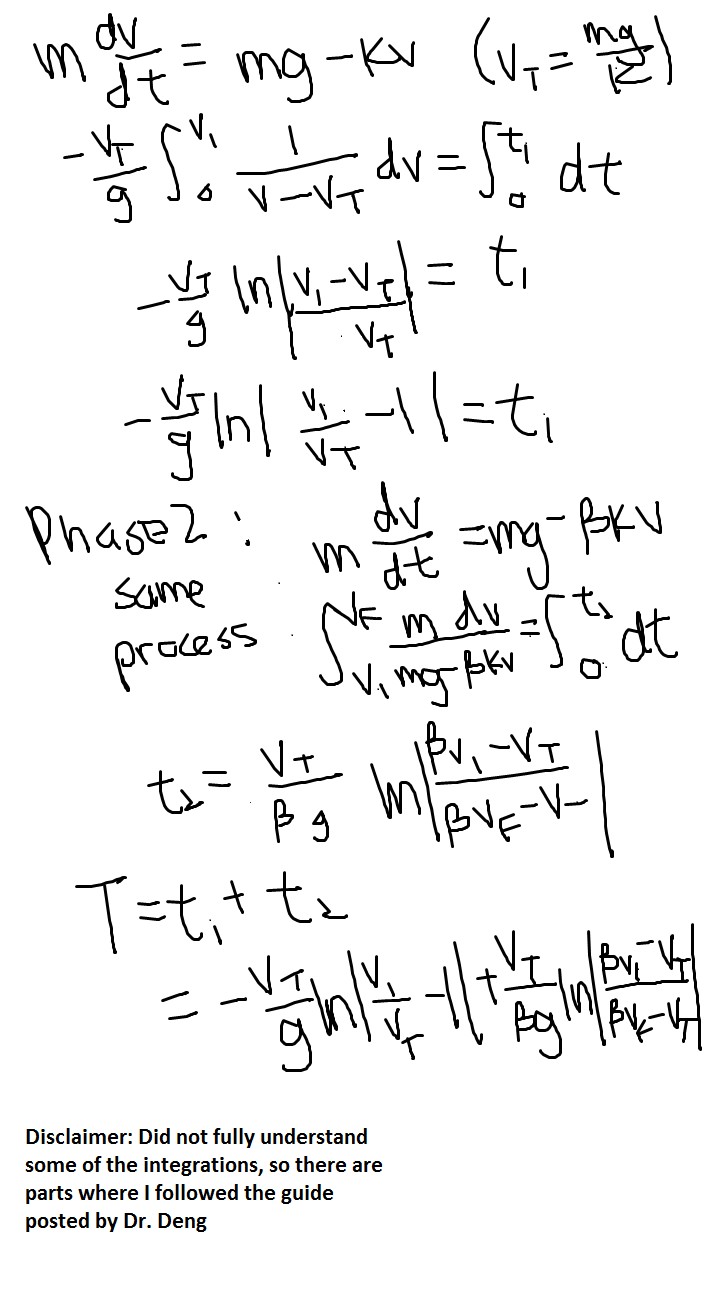 m dv/dt = mg - kv (V_T = mg/k)
-V_T/g ∫_0^{V_1} 1/(V-V_T) dv = ∫_0^{t_1} dt
-V_T/g ln|(V_1-V_T)/V_T| = t_1
-V_T/g ln|V_1/V_T -1| = t_1
Phase 2: m dv/dt = mg - βkv
same
process ∫_{V_1}^{V_F} m dv/(mg-βkv) = ∫_0^{t_2} dt
t_2 = V_T/(βg) ln|(βV_1-V_T)/(βV_F-V-)|
T = t_1 + t_2
= -V_T/g ln|V_1/V_T -1| + V_T/(βg) ln|(βV_1-V_T)/(βV_F-V_T)|
Disclaimer: Did not fully understand
some of the integrations, so there are
parts where I followed the guide
posted by Dr. Deng